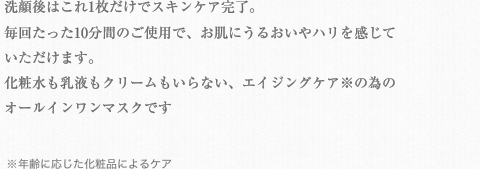 洗顔後はこれ1枚だけでスキンケア完了。
毎回たった10分間のご使用で、お肌にうるおいやハリを感じて
いただけます。
化粧水も乳液もクリームもいらない、エイジングケア※の為の
オールインワンマスクです
※年齢に応じた化粧品によるケア